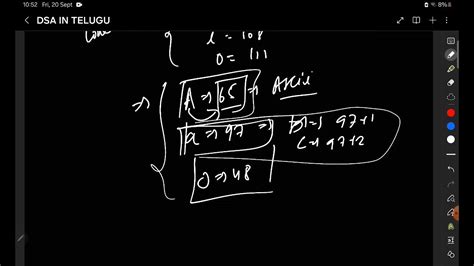 10:52 Fri, 20 Sept
8%
DSA IN TELUGU
l = 108
0 = 111
A => 65 => Ascii
a => 97 => b => 97+1
c => 97+2
0 => 48